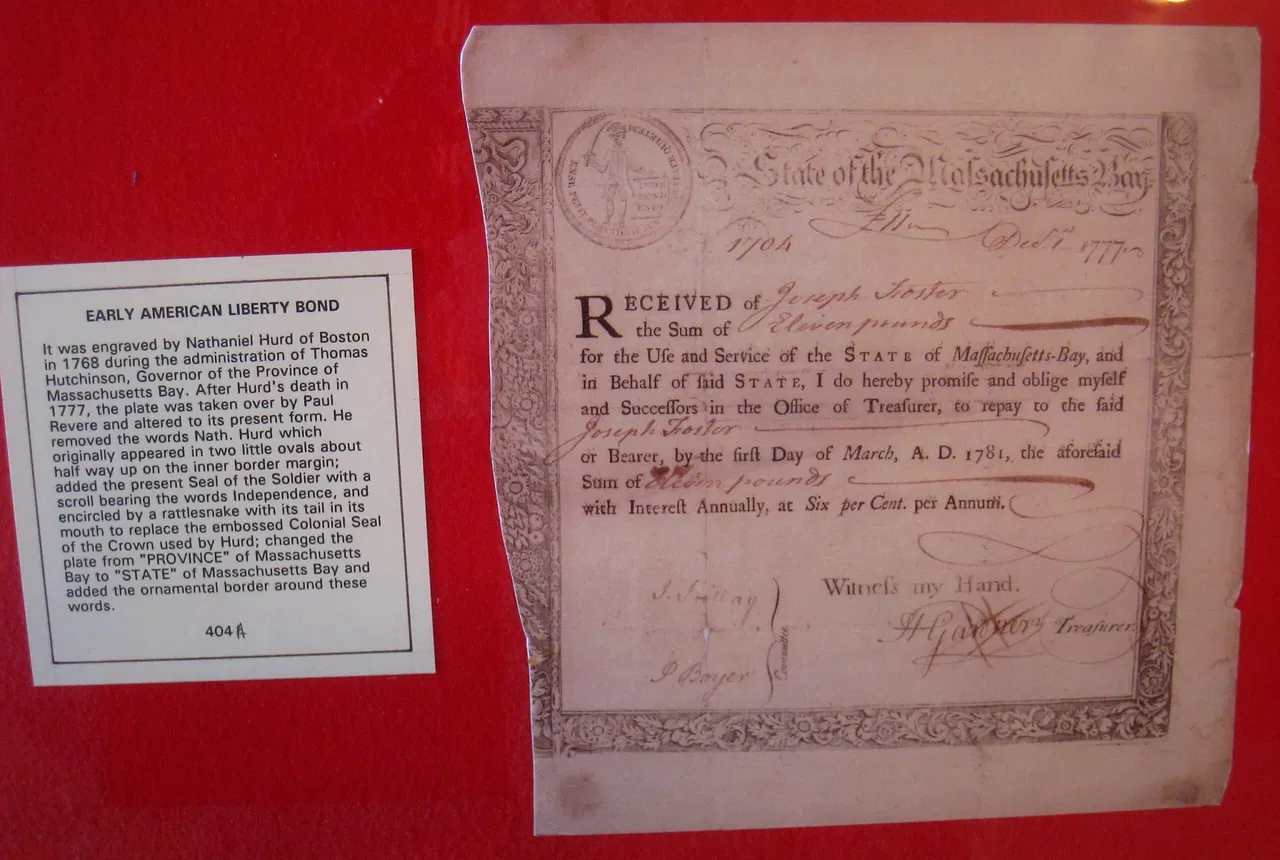 EARLY AMERICAN LIBERTY BOND
It was engraved by Nathaniel Hurd of Boston
in 1768 during the administration of Thomas
Hutchinson, Governor of the Province of
Massachusetts Bay. After Hurd's death in
1777, the plate was taken over by Paul
Revere and altered to its present form. He
removed the words Nath. Hurd which
originally appeared in two little ovals about
half way up on the inner border margin;
added the present Seal of the Soldier with a
scroll bearing the words Independence, and
encircled by a rattlesnake with its tail in its
mouth to replace the embossed Colonial Seal
of the Crown used by Hurd; changed the
plate from "PROVINCE" of Massachusetts
Bay to "STATE" of Massachusetts Bay and
added the ornamental border around these
words.
404A
State of the Maſsachuſetts Bay
1704
Decr. 1st 1777
RECEIVED of Joseph Foster
the Sum of Eleven pounds
for the Uſe and Service of the STATE of Maſſachuſetts-Bay, and
in Behalf of ſaid STATE, I do hereby promiſe and oblige myſelf
and Succeſſors in the Office of Treaſurer, to repay to the ſaid
Joseph Foster
or Bearer, by the firſt Day of March, A. D. 1781, the aforeſaid
Sum of Eleven pounds
with Intereſt Annually, at Six per Cent. per Annum.
Witneſs my Hand.
H Gardner Treaſurer.
P Boyer
Committee